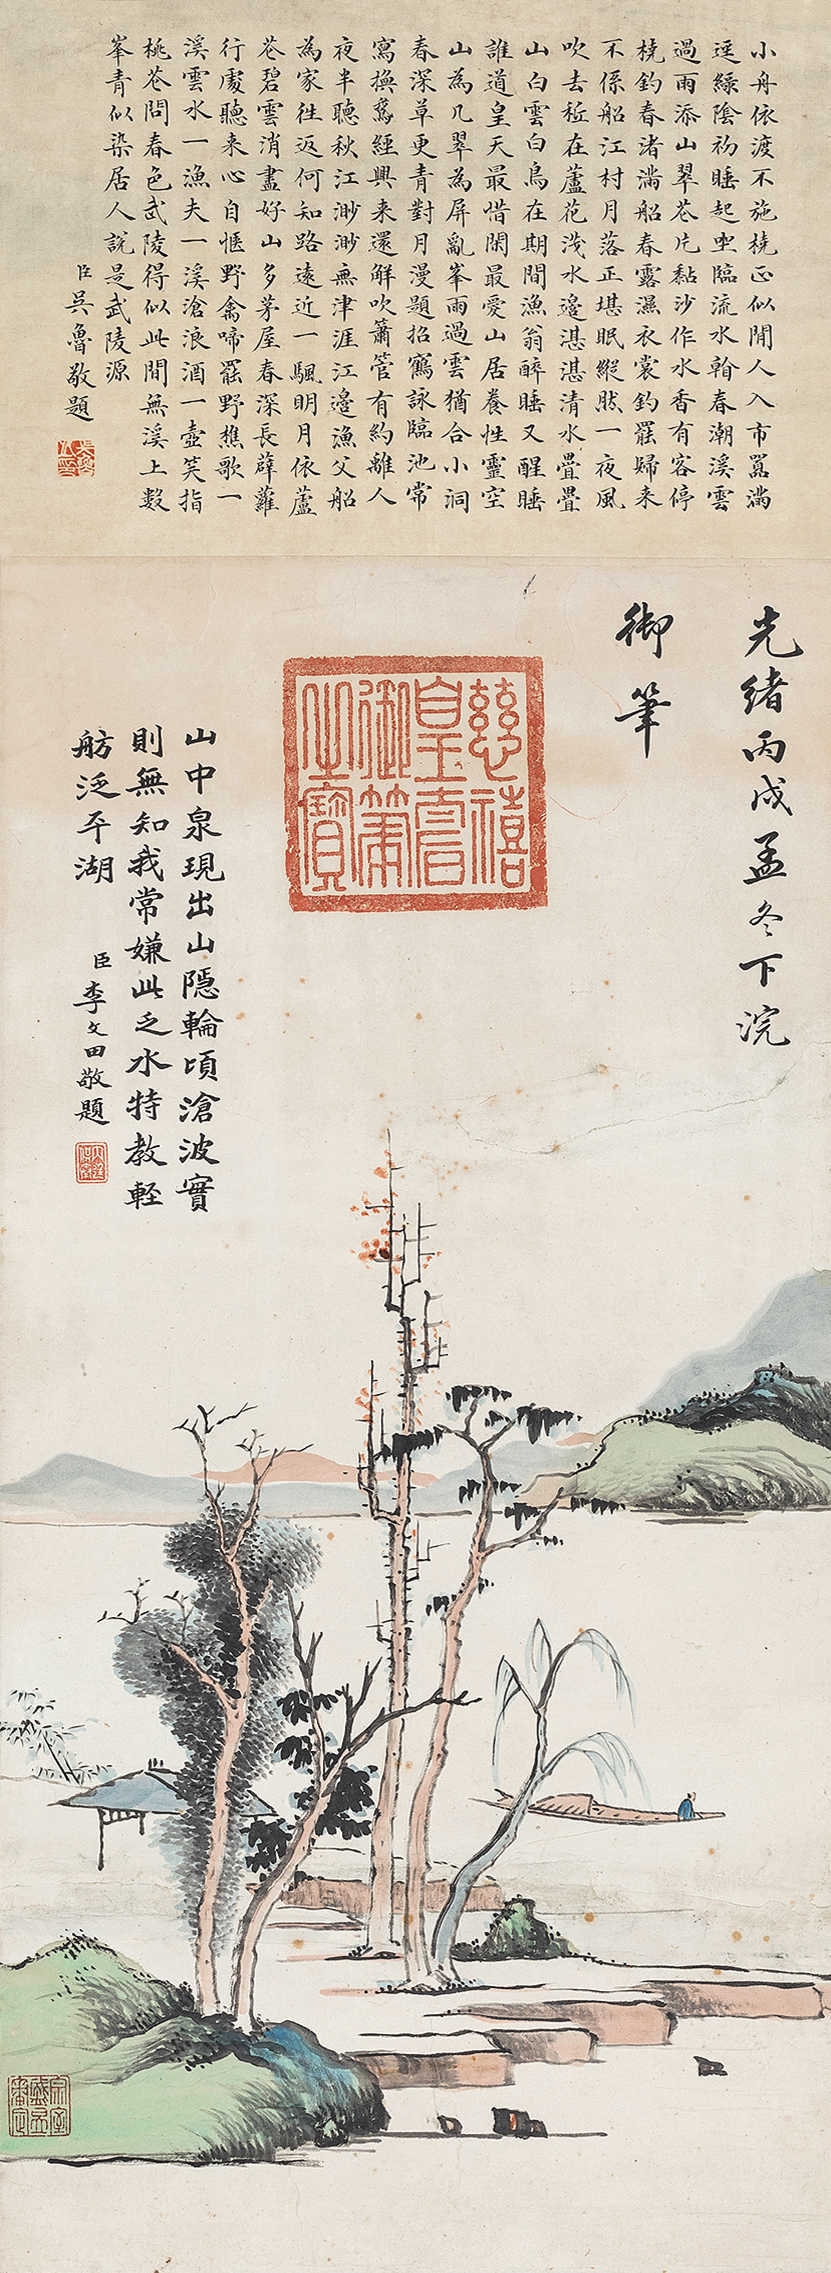 小舟依渡不施橈正似閒人入市嚣滿
逕綠陰初睡起坐臨流水翰春潮溪雲
過雨添山翠芲片黏沙作水香有客停
橈釣春渚滿船春露濕衣裳釣罷歸来
不係船江村月落正堪眠縱肰一夜風
吹去秪在蘆花淺水邊湛湛清水疊疊
山白雲白鳥在期間漁翁醉睡又醒睡
誰道皇天最惜閑最愛山居養性靈空
山為几翠為屏亂峯雨過雲猶合小洞
春深草更青對月漫題招鶴詠臨池常
寫換鵞經興来還解吹簫管有約離人
夜半聽秋江渺渺無津涯江邊漁父船
為家徃返何知路遠近一颿明月依蘆
芲碧雲消盡好山多茅屋春深長薜蘿
行處聽来心自愜野禽啼罷野樵歌一
溪雲水一漁夫一溪滄浪酒一壺笑指
桃芲問春色武陵得似此間無溪上數
峯青似染居人說是武陵源
臣吳魯敬題
光緒丙戌孟冬下浣
御筆
慈禧
皇太后
御筆
之寶
山中泉現出山隱輪頃滄波實
則無知我常嫌此乏水特教輕
舫泛平湖
臣李文田敬題